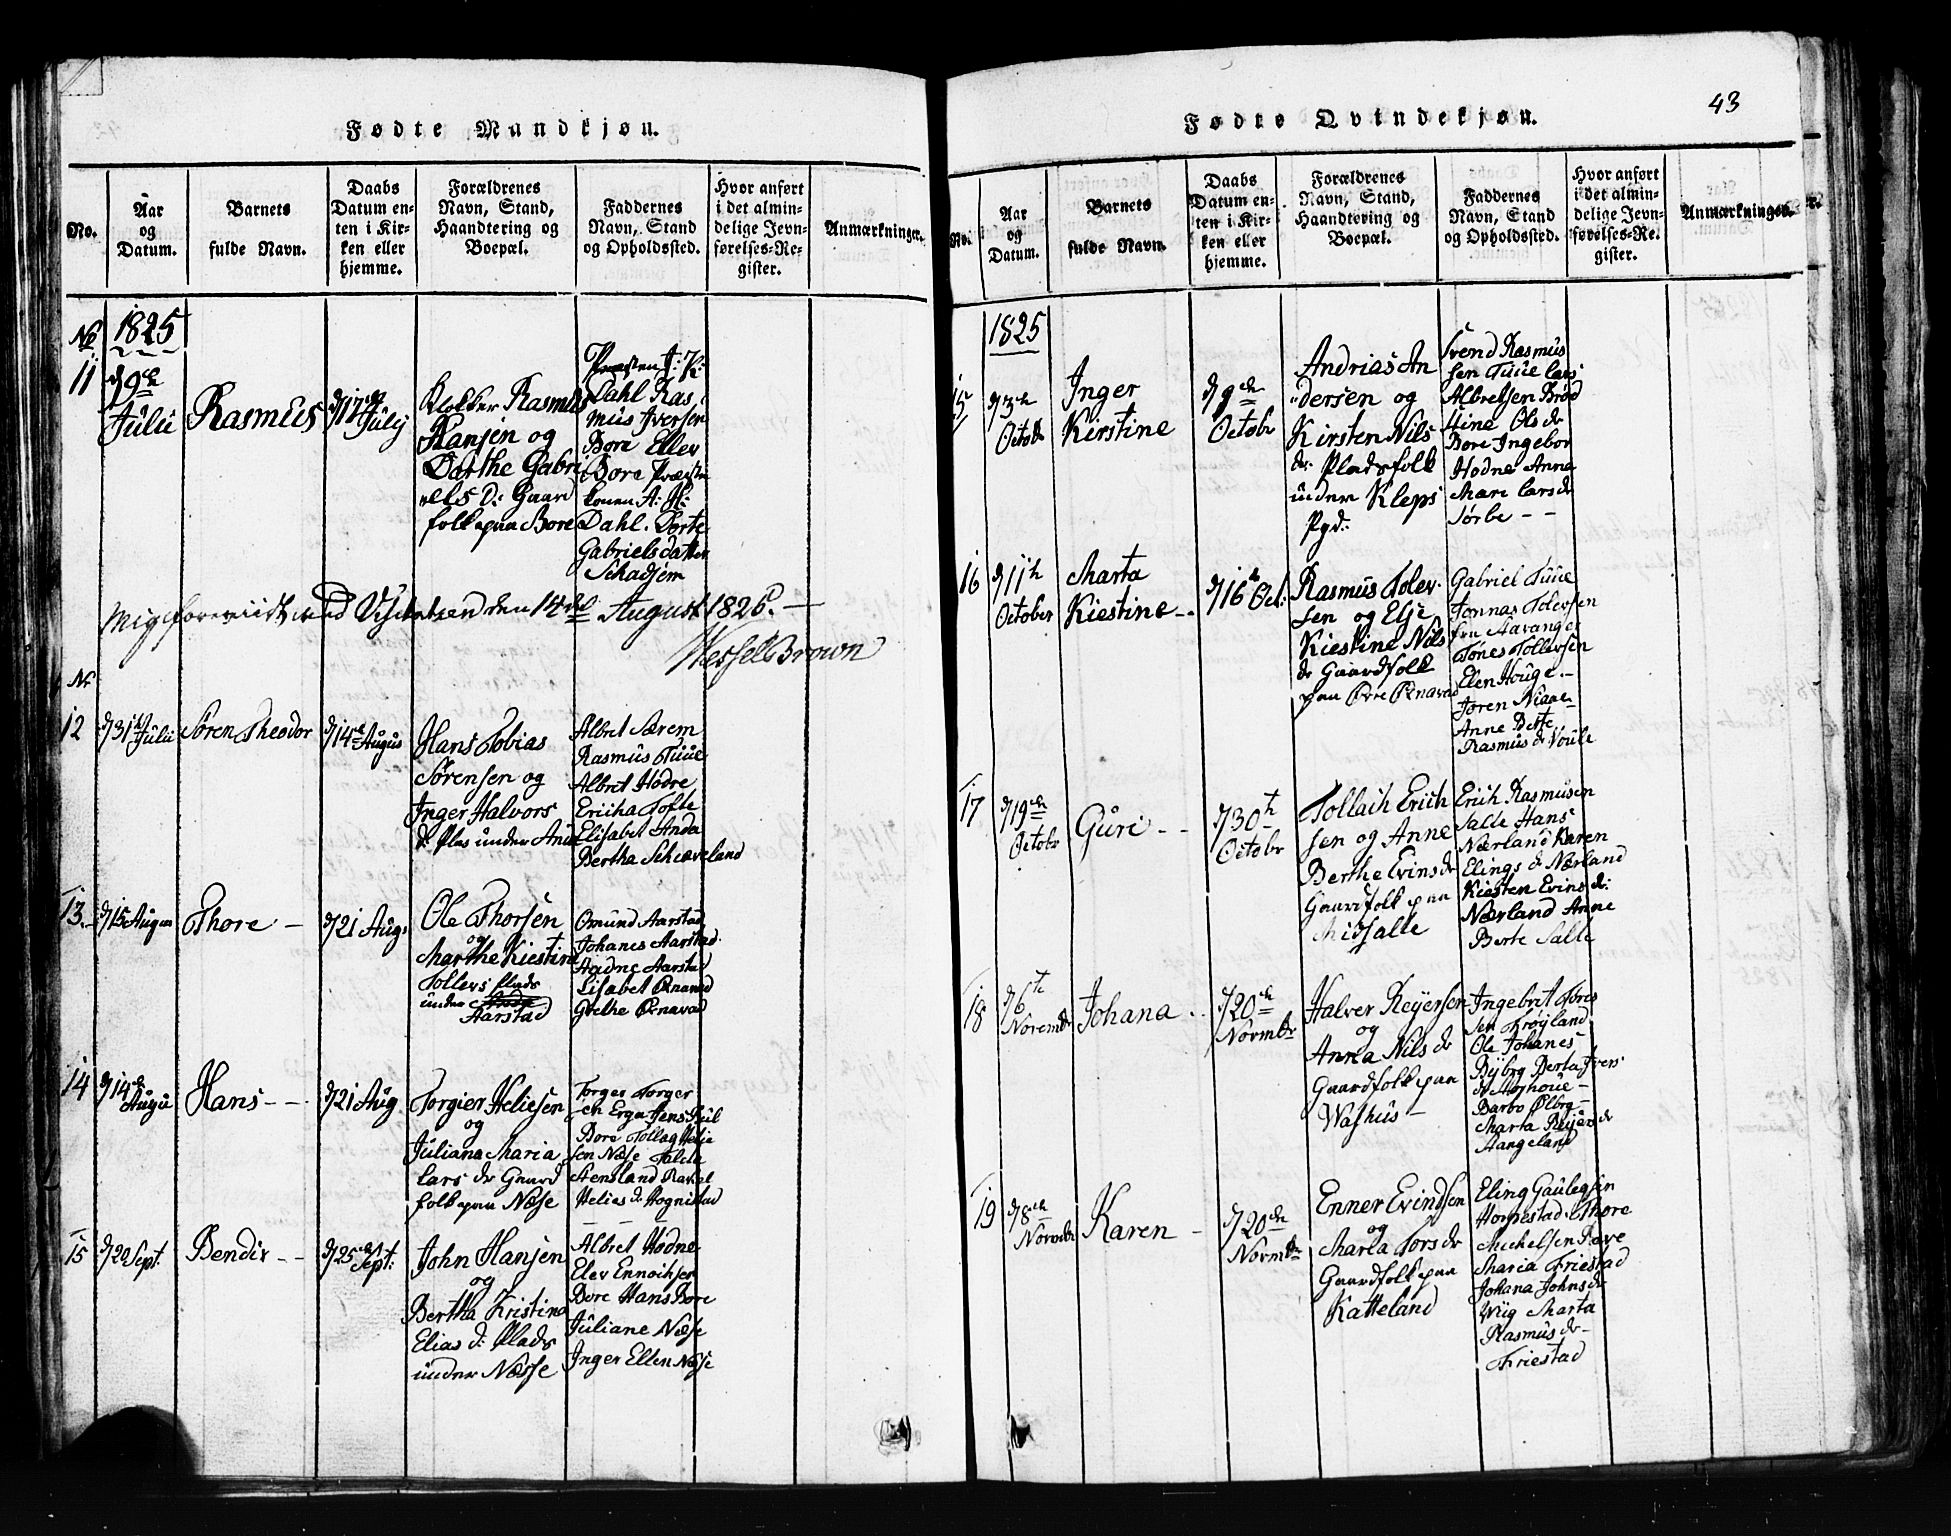 Fødte Mandkjøn.
No.
Aar
og
Datum.
Barnets
fulde Navn.
Daabs
Datum en-
ten i Kir-
ken eller
hjemme.
Forældrenes
Navn, Stand,
Haandtering og
Boepæl.
Faddernes
Navn, Stand
og Opholdssted.
Hvor anført
i det almin-
delige Jevn-
førelses-Re-
gister.
Anmærkninger.
No
1825
11
d 9de
Julii
Rasmus
d 17de
July
Klokker Rasmus
Hansen og
Dorthe Gabri
els D: Gaard
folk paa Bore
Præsten A: K:
Dahl Ras
mus Iversen
Bore Eller
Bore Præste
konen A: H:
Dahl. Dorte
Gabrielsdatter
Schadsem
Mig foreviist ved Visitatsen den 14de August 1825.
Wessel Brown
No
12
d 31te Julii
Søren Theodor
d 14de Augus
Hans Tobias
Sørensen og
Inger Halvors
d. Plas under Anda
Albret Særem
Rasmus Tuue
Albret Hodne
Ericha Tofte
Elisabet Anda
Bertha Schæveland
13.
d 15 August
Thore –
d 21 Aug:
Ole Thorsen
og
Marthe Kiestine
Tollers Plads
under
Aarstad
Omund Aarstad
Johanes Aarstad
Aadne Aarstad
Lisabet Ørnavad
Grethe Ørnavad
14
d 14de
Augu
Hans – –
d 21 Aug.
Torgier Heliesen
og
Juliana Maria
Lars dr Gaard
folk paa Næse
Torger Torger
sen Erga Jens Riil
Bore Tollag Helie
sen Næse Talete
Stensland Rakel
Helies dr Hognestad
15
d 20 Sept.
Bendix – –
d 25de Sept:
John Hansen
og
Bertha Kristina
Elias d: Plads
under Næsse
Albret Hodne
Elev Ennochsen
Bore Hans Bore
Juliane Næse
Inger Ellen Næse
43
Fødte Qvindekjøn.
No.
Aar
og
Datum.
Barnets
fulde Navn.
Daabs
Datum en-
ten i Kir-
ken eller
hjemme.
Forældrenes
Navn, Stand,
Haandtering og
Boepæl.
Faddernes
Navn, Stand
og Opholdssted.
Hvor anført
i det almin-
delige Jevn-
førelses-Re-
gister.
Anmærkninger.
1825
15
d 3de
Octobr
Inger
Kirstine
d 9de
Octobr
Andrias An
dersen og
Kirsten Nils
dr: Pladsfolk
under Kleps
Pgd:
Svend Rasmus
sen Tuue Lars
Albretsen Brød
Stine Ols dr
Bore Ingebor
Hodne Anna
Mari Lars dr
Sørbe – –
16
d 11te
October
Marta
Kiestine –
d 16de Oct:
Rasmus Tolev
sen og Else
Kiestine Nils
dr Gaardfolk
paa Øvre Ørnavad
Gabriel Tuue
Jonnas Tolevsen
fra Stavanger
Tønes Tollevsen
Elen Houge –
Joren Niaae
Anne Berte
Rasmus dr Voule
17
d 19de
Octobr
Guri – –
d 30te
Octobr
Tollach Erich
sen og Anne
Berthe Evins dr
Gaardfolk paa
Midsalte
Erich Rasmusen
Salte Hans
Nærland Karen
Elings dr Nærland
Kiesten Evins dr:
Nærland Anne
Berte Salte
18
d 6te
Novembr
Johana
d 20de
Novmbr
Halver Reyersen
og
Anna Nils dr
Gaardfolk paa
Washus –
Ingebrit Tores
sen Frøyland
Ole Johanes
Bybrg Berta Ivers
dr Moshoue –
Barbo Ølbrg –
Marta Reyers dr
Aangeland
19
d 8de
Novmbr
Karen –
d 20de
Novmbr
Enner Evindsen
og
Marta Tors dr
Gaardfolk paa
Katteland
Eling Gaulegsen
Horpestad Thore
Michelsen Røve
Maria Friestad
Johana Johns dr
Wiig Marta
Rasmus dr –
Friestad